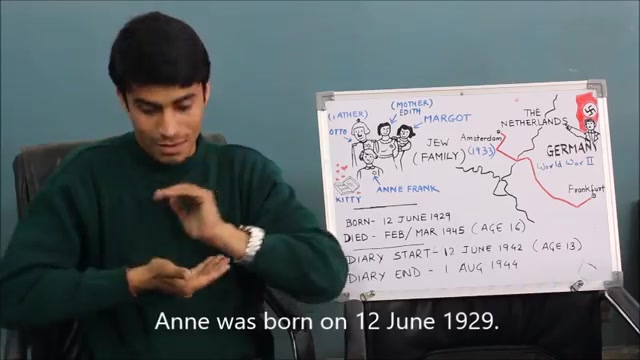 (FATHER)
OTTO
(MOTHER)
EDITH
MARGOT
JEW
(FAMILY)
ANNE FRANK
KITTY
THE
NETHERLANDS
Amsterdam
(1933)
GERMANY
World War II
Frankfurt
BORN- 12 JUNE 1929
DIED - FEB/MAR 1945 (AGE 16)
DIARY START- 12 JUNE 1942 (AGE 13)
DIARY END - 1 AUG 1944
Anne was born on 12 June 1929.